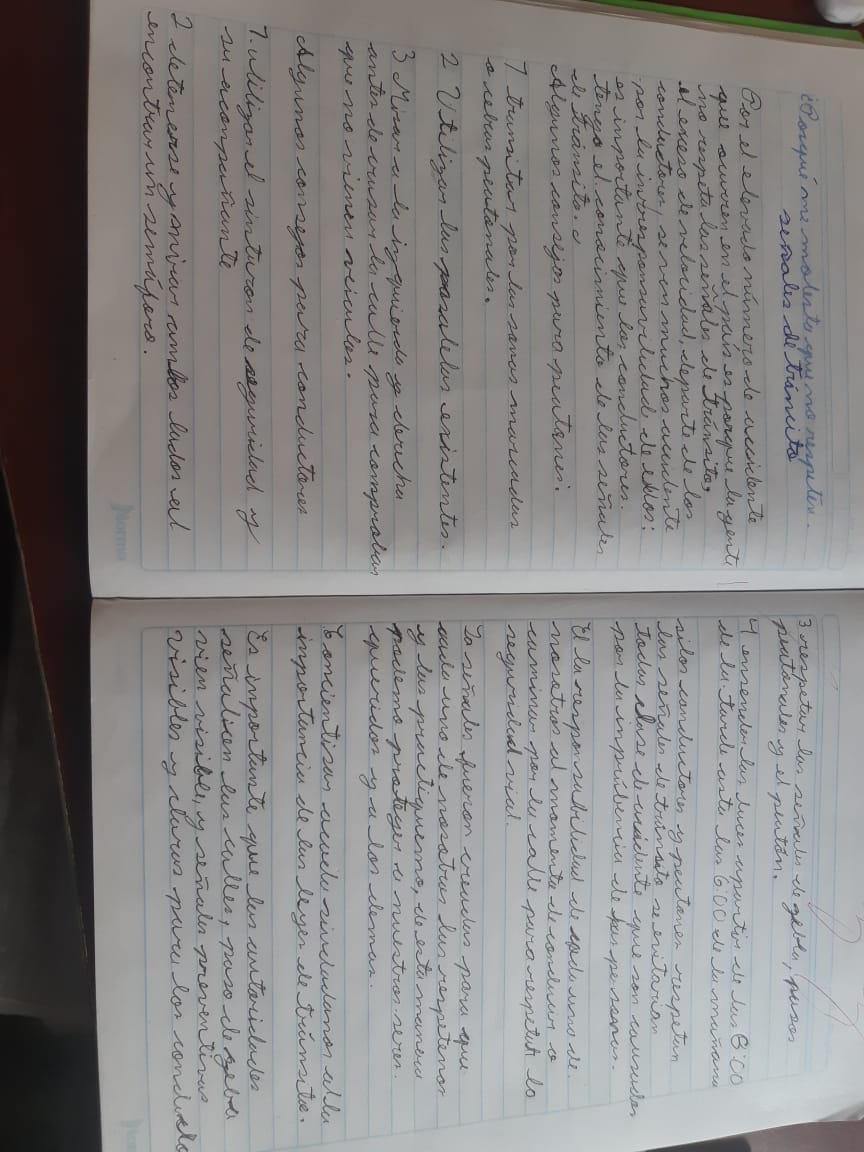 ¿Porqué me molesta que no respeten.
señales de tránsito
Por el elevado número de accidente
que ocurren en el país es porque la gente
no respeta las señales de tránsito,
el exceso de velocidad, departe de los
conductores, se ven muchos accidente
por la irresponsavilidad de ellos:
es importante que los conductores.
tengo el conocimiento de las señales
de tránsito.
Algunos consejos para peatones:
1 transitar por las zonas marcadas
o cebras peatonales.
2 Utilizar las pasalelas existentes.
3 Mirar a la izquierda y derecha
antes de crusar la calle para comprobar
que no vienen veículos.
Algunos consejos para conductores
1. utilizar el sinturon de seguridad y
su acompañante
2 detenerse y mirar ambos lados al
encontrar un semáforo.
Norma
3 respetar las señales de zebra, pasos
peatonales y el peatón.
4 ensender las luces apartir de las 6:00
de la tarde asta las 6:00 de la mañana
silos conductores y peatones respetan
las señales de tránsito se evitarian
todas clase de accidente que son causados
por la imprudencia de las personas.
El la responsabilidad de cada uno de
nosotros al momento de conducir o
caminar por la calle para respetar la
seguridad vial.
La señales fueron creadas para que
cada uno de nosotros las respetemos
y las practiquemos, de esta manera
podemo proteger a nuestros seres.
queridos y a los demas.
Concientisar acada siudadanos al la
importancia de las leyes de tránsito.
Es importante que las autoridades
señalicen las calles, paso de zebra
vien visible, y señales preventivas
visibles y claras para los conducto